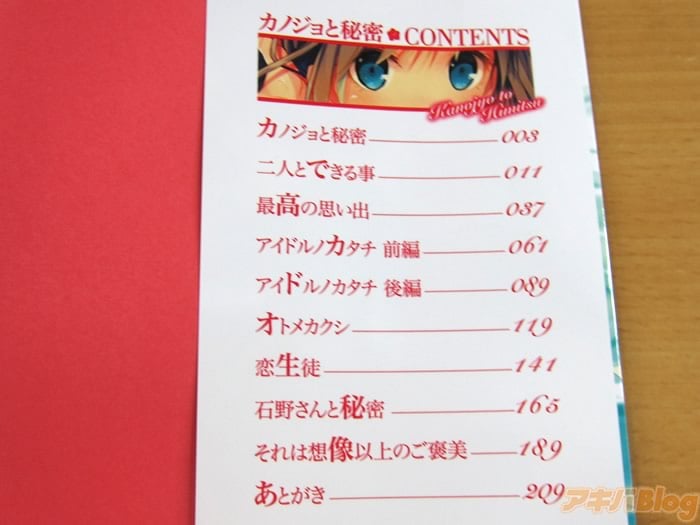 カノジョと秘密 CONTENTS
Kanojyo to
Himitsu
カノジョと秘密 003
二人とできる事 011
最高の思い出 037
アイドルノカタチ 前編 061
アイドルノカタチ 後編 089
オトメカクシ 119
恋生徒 141
石野さんと秘密 165
それは想像以上のご褒美 189
あとがき 209
アキバBlog